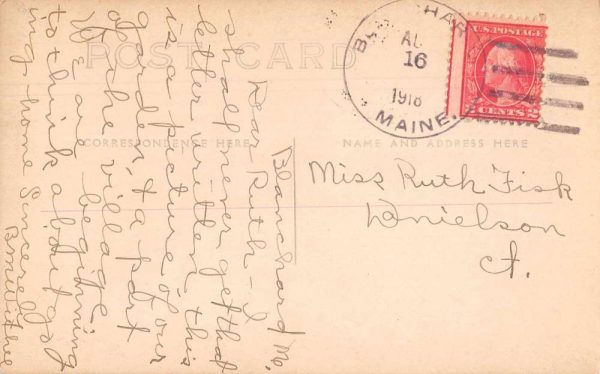 POST CARD
CORRESPONDENCE HERE
NAME AND ADDRESS HERE
HAR
AU
16
1918
MAINE.
U.S. POSTAGE
2 CENTS 2
Blanchard, Me.
Dear Ruth - I
shall never get that
letter written, this
is a picture of our
garden & a part
of the village.
We are beginning
to think about go-
ing home Sincerely
Miss Ruth Fisk
Danielson
Ct.